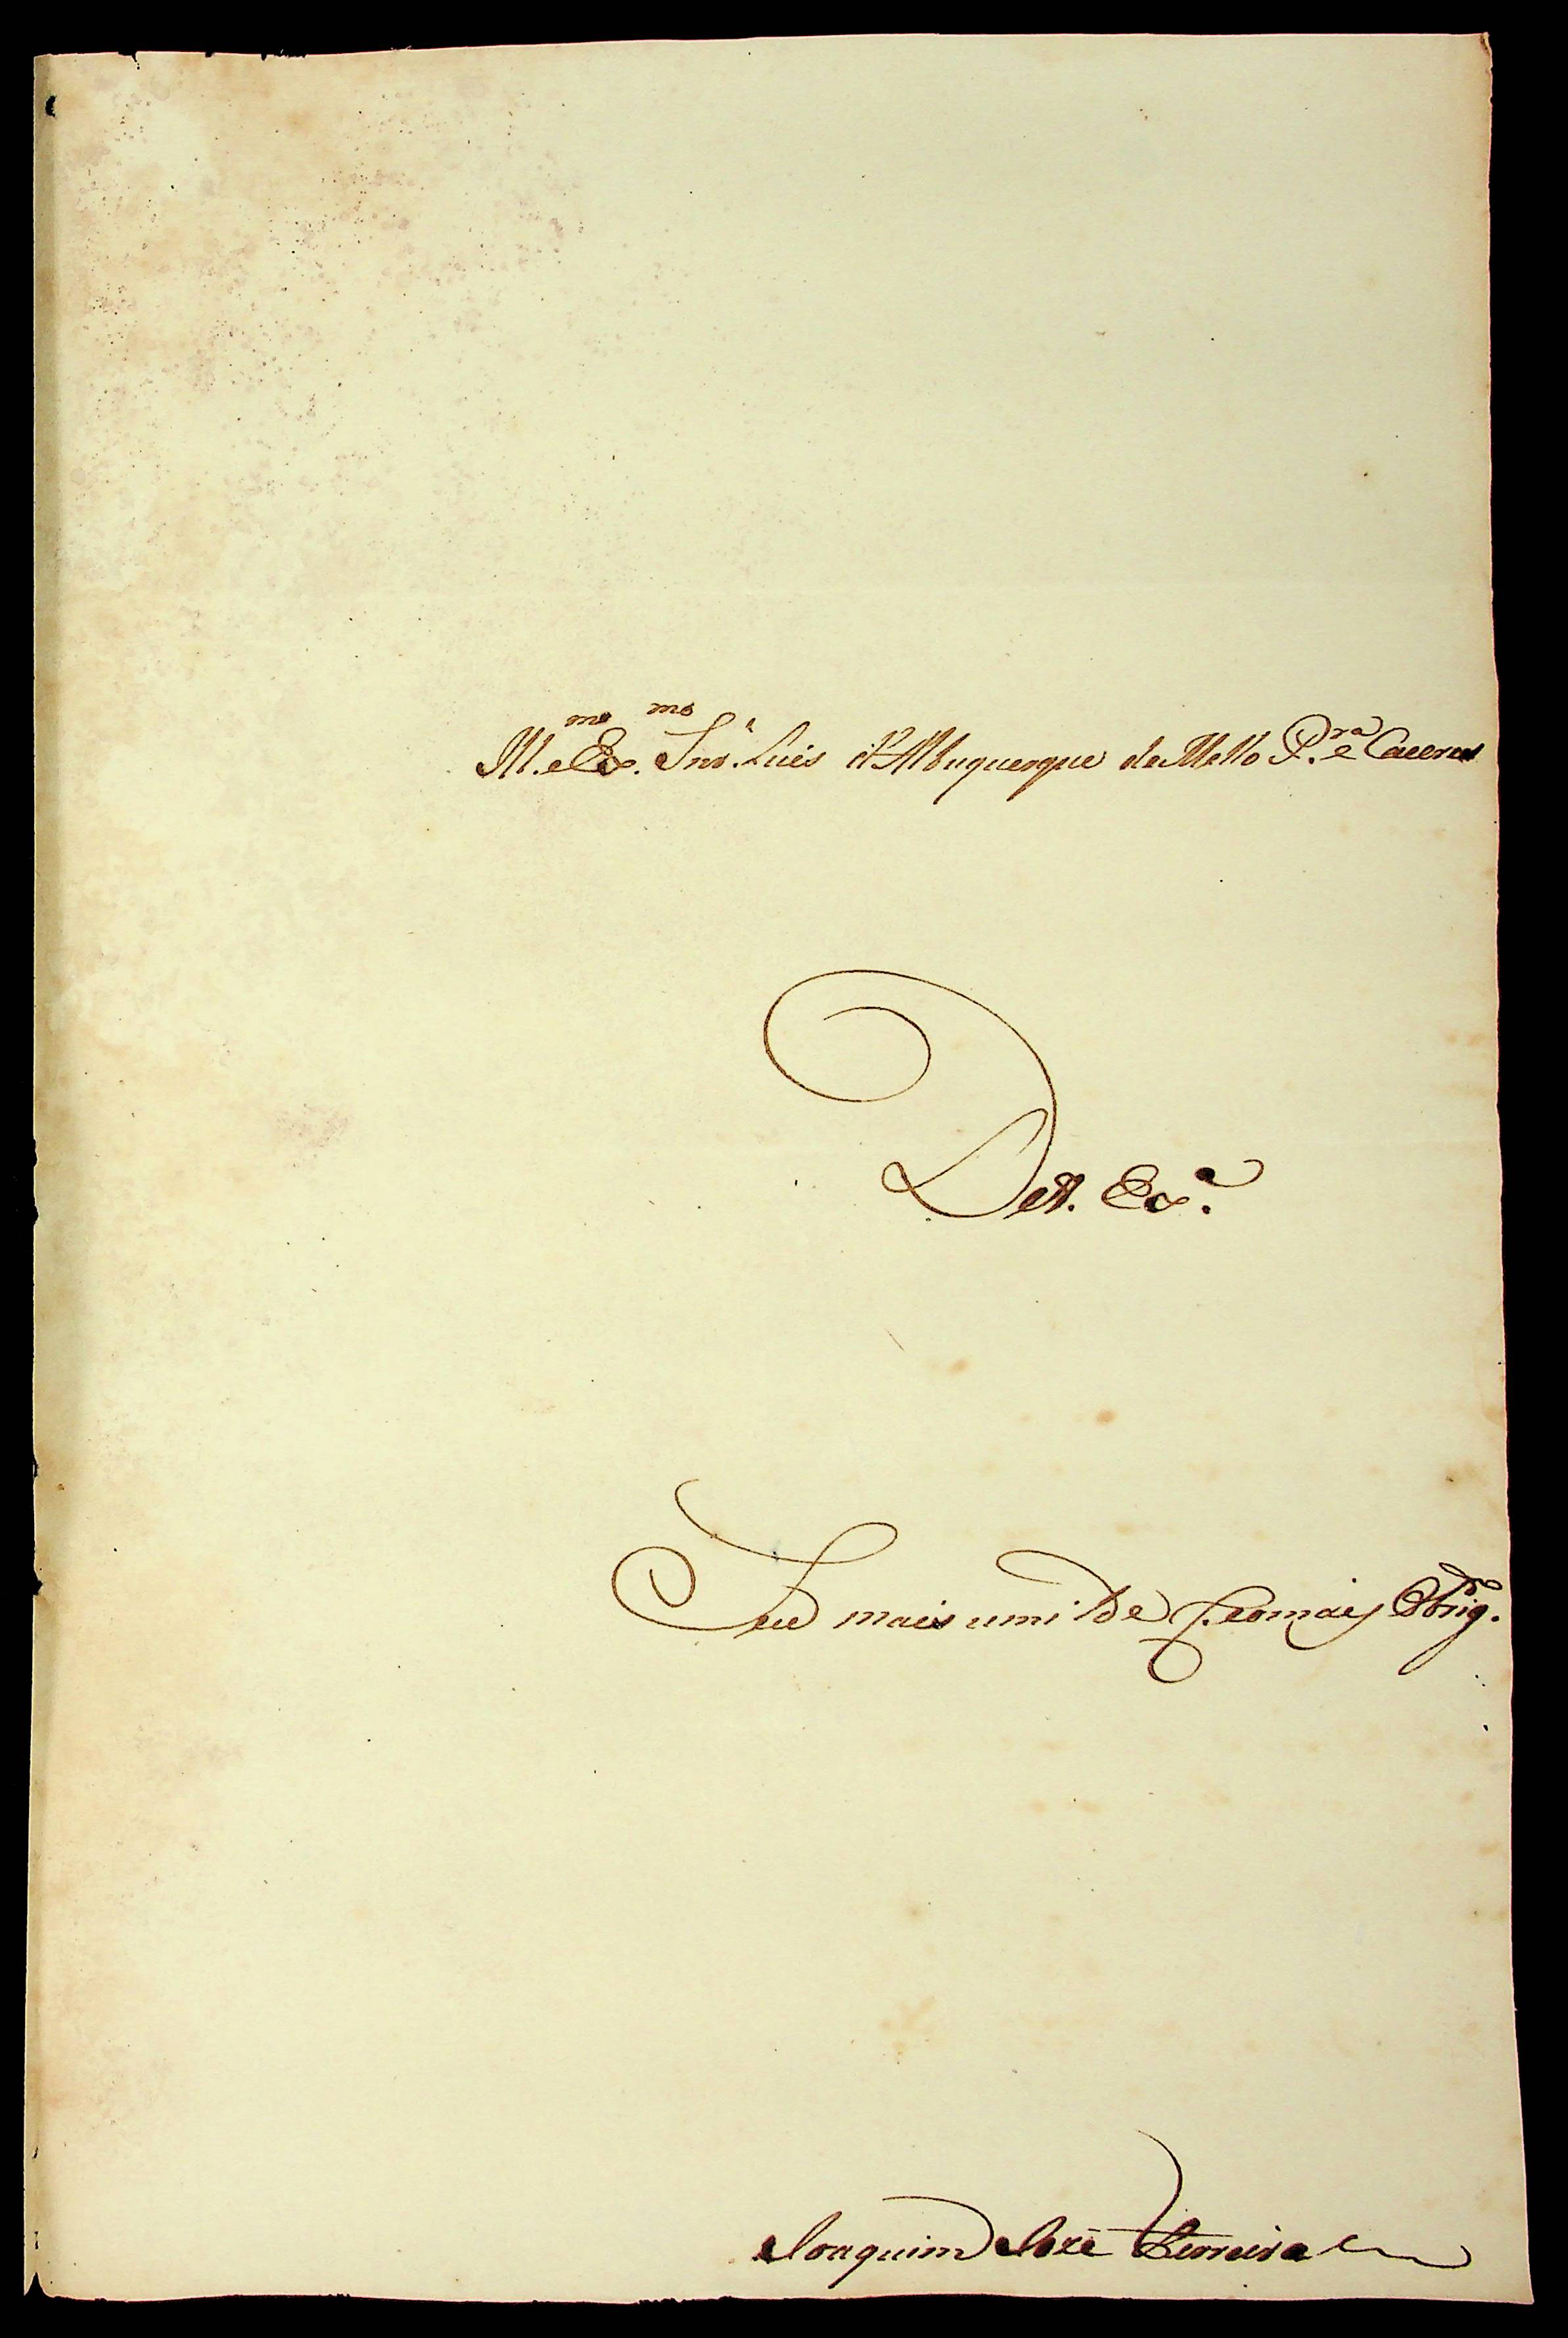 Ill.mo e Ex.mo Snr. Luis d'Albuquerque de Mello P.ra e Caceres
De V. Ex.a
Seu mais umilde S. e o mais Obrig.do
Joaquim Jozé Ferreira